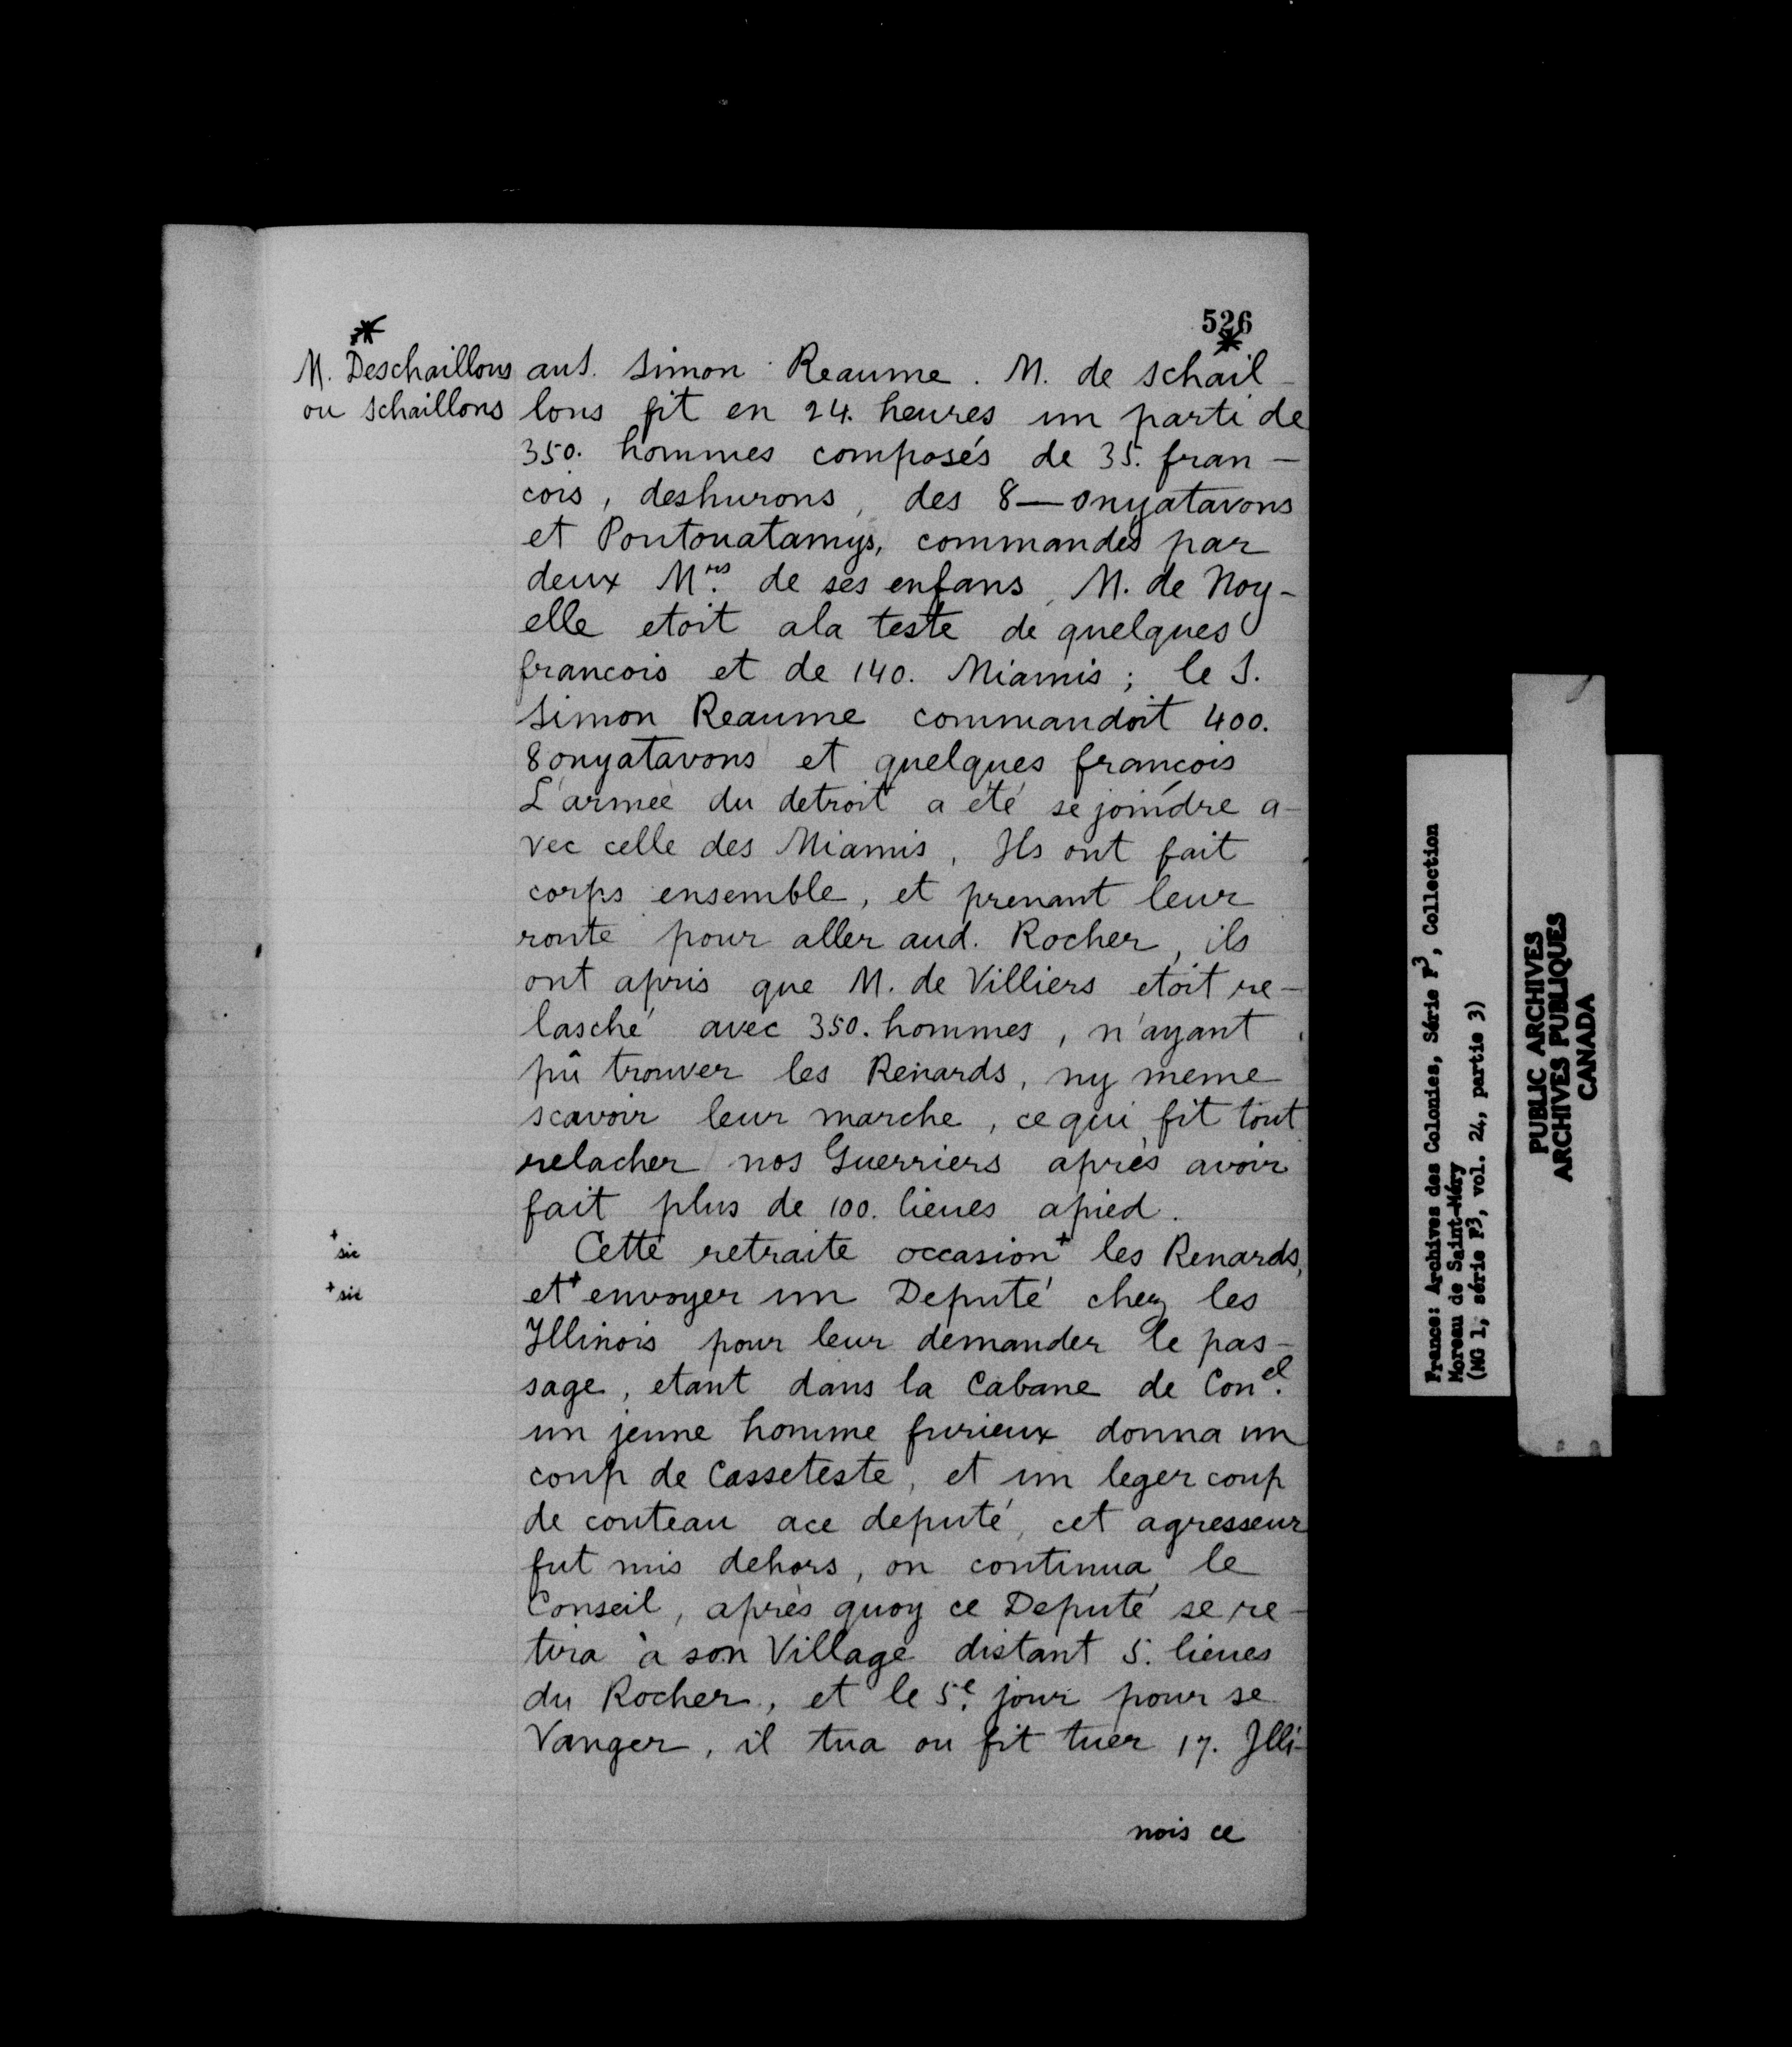 526
*
*
M. Deschaillons
ou Schaillons
auS. Simon Reaume. M. de schail-
lons fit en 24. heures un parti de
350. hommes composés de 35. fran-
cois, deshurons, des 8—onyatavons
et Poutouatamys, commandés par
deux M.rs de ses enfans, M. de Noy-
elle etoit ala teste de quelques
francois et de 140. Miamis; le S.
Simon Reaume commandoit 400.
8onyatavons et quelques françois
L'armée du detroit a été se joindre a-
vec celle des Miamis, Ils ont fait
corps ensemble, et prenant leur
route pour aller aud. Rocher, ils
ont apris que M. de Villiers etoit re-
lasché avec 350. hommes, n'ayant
pû trouver les Renards, ny meme
scavoir leur marche, ce qui fit tout
relacher nos Guerriers après avoir
fait plus de 100. lieues apied.
+ sic
Cette retraite occasion+ les Renards,
+ sic
et+ envoyer un Deputé chez les
Illinois pour leur demander le pas-
sage, etant dans la Cabane de Con.el
un jeune homme furieux donna un
coup de Casseteste, et un leger coup
de couteau ace deputé, cet agresseur
fut mis dehors, on continua le
Conseil, après quoy ce Deputé se re-
tira à son Village distant 5. lieues
du Rocher, et le 5.e jour pour se
Vanger, il tua ou fit tuer 17. Illi-
nois ce
France: Archives des Colonies, Série F3, Collection
Moreau de Saint-Méry
(MG 1, série F3, vol. 24, partie 3)
PUBLIC ARCHIVES
ARCHIVES PUBLIQUES
CANADA